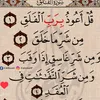 قُلْ أَعُوذُ بِرَبِّ ٱلْفَلَقِ
مِن شَرِّ مَا خَلَقَ
وَمِن شَرِّ غَاسِقٍ إِذَا وَقَبَ
وَمِن شَرِّ ٱلنَّفَّٰثَٰتِ فِي
ٱلْعُقَدِ